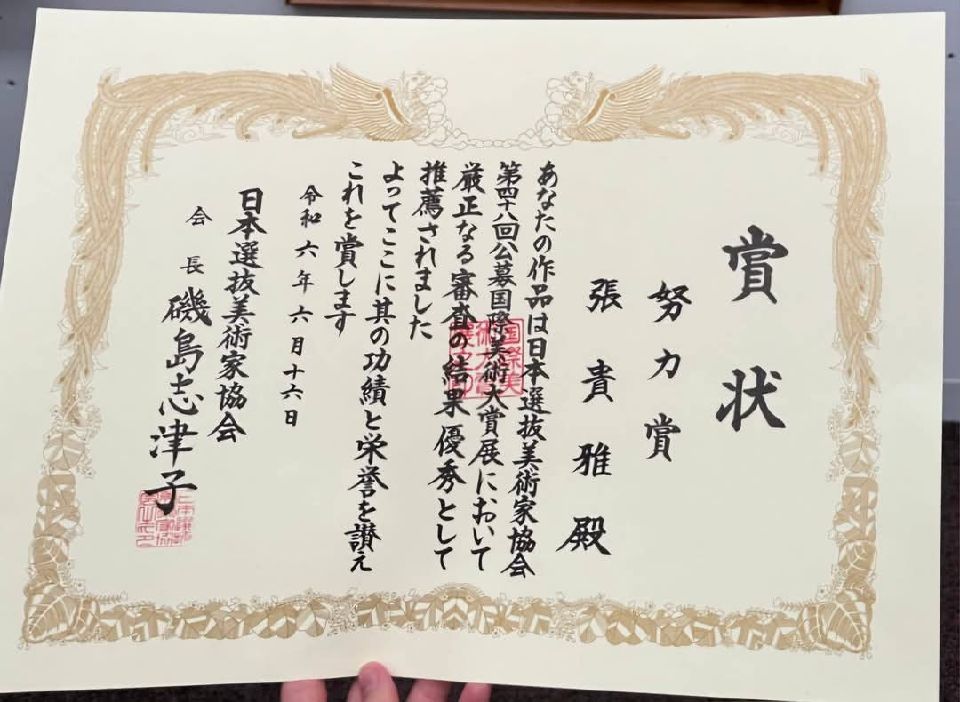 賞状
努力賞
張貴雅殿
あなたの作品は日本選抜美術家協会
第四十八回公募国際美術大賞展において
厳正なる審査の結果優秀として
推薦されました
よってここに其の功績と栄誉を讃え
これを賞します
令和六年六月十六日
日本選抜美術家協会
会長 磯島志津子